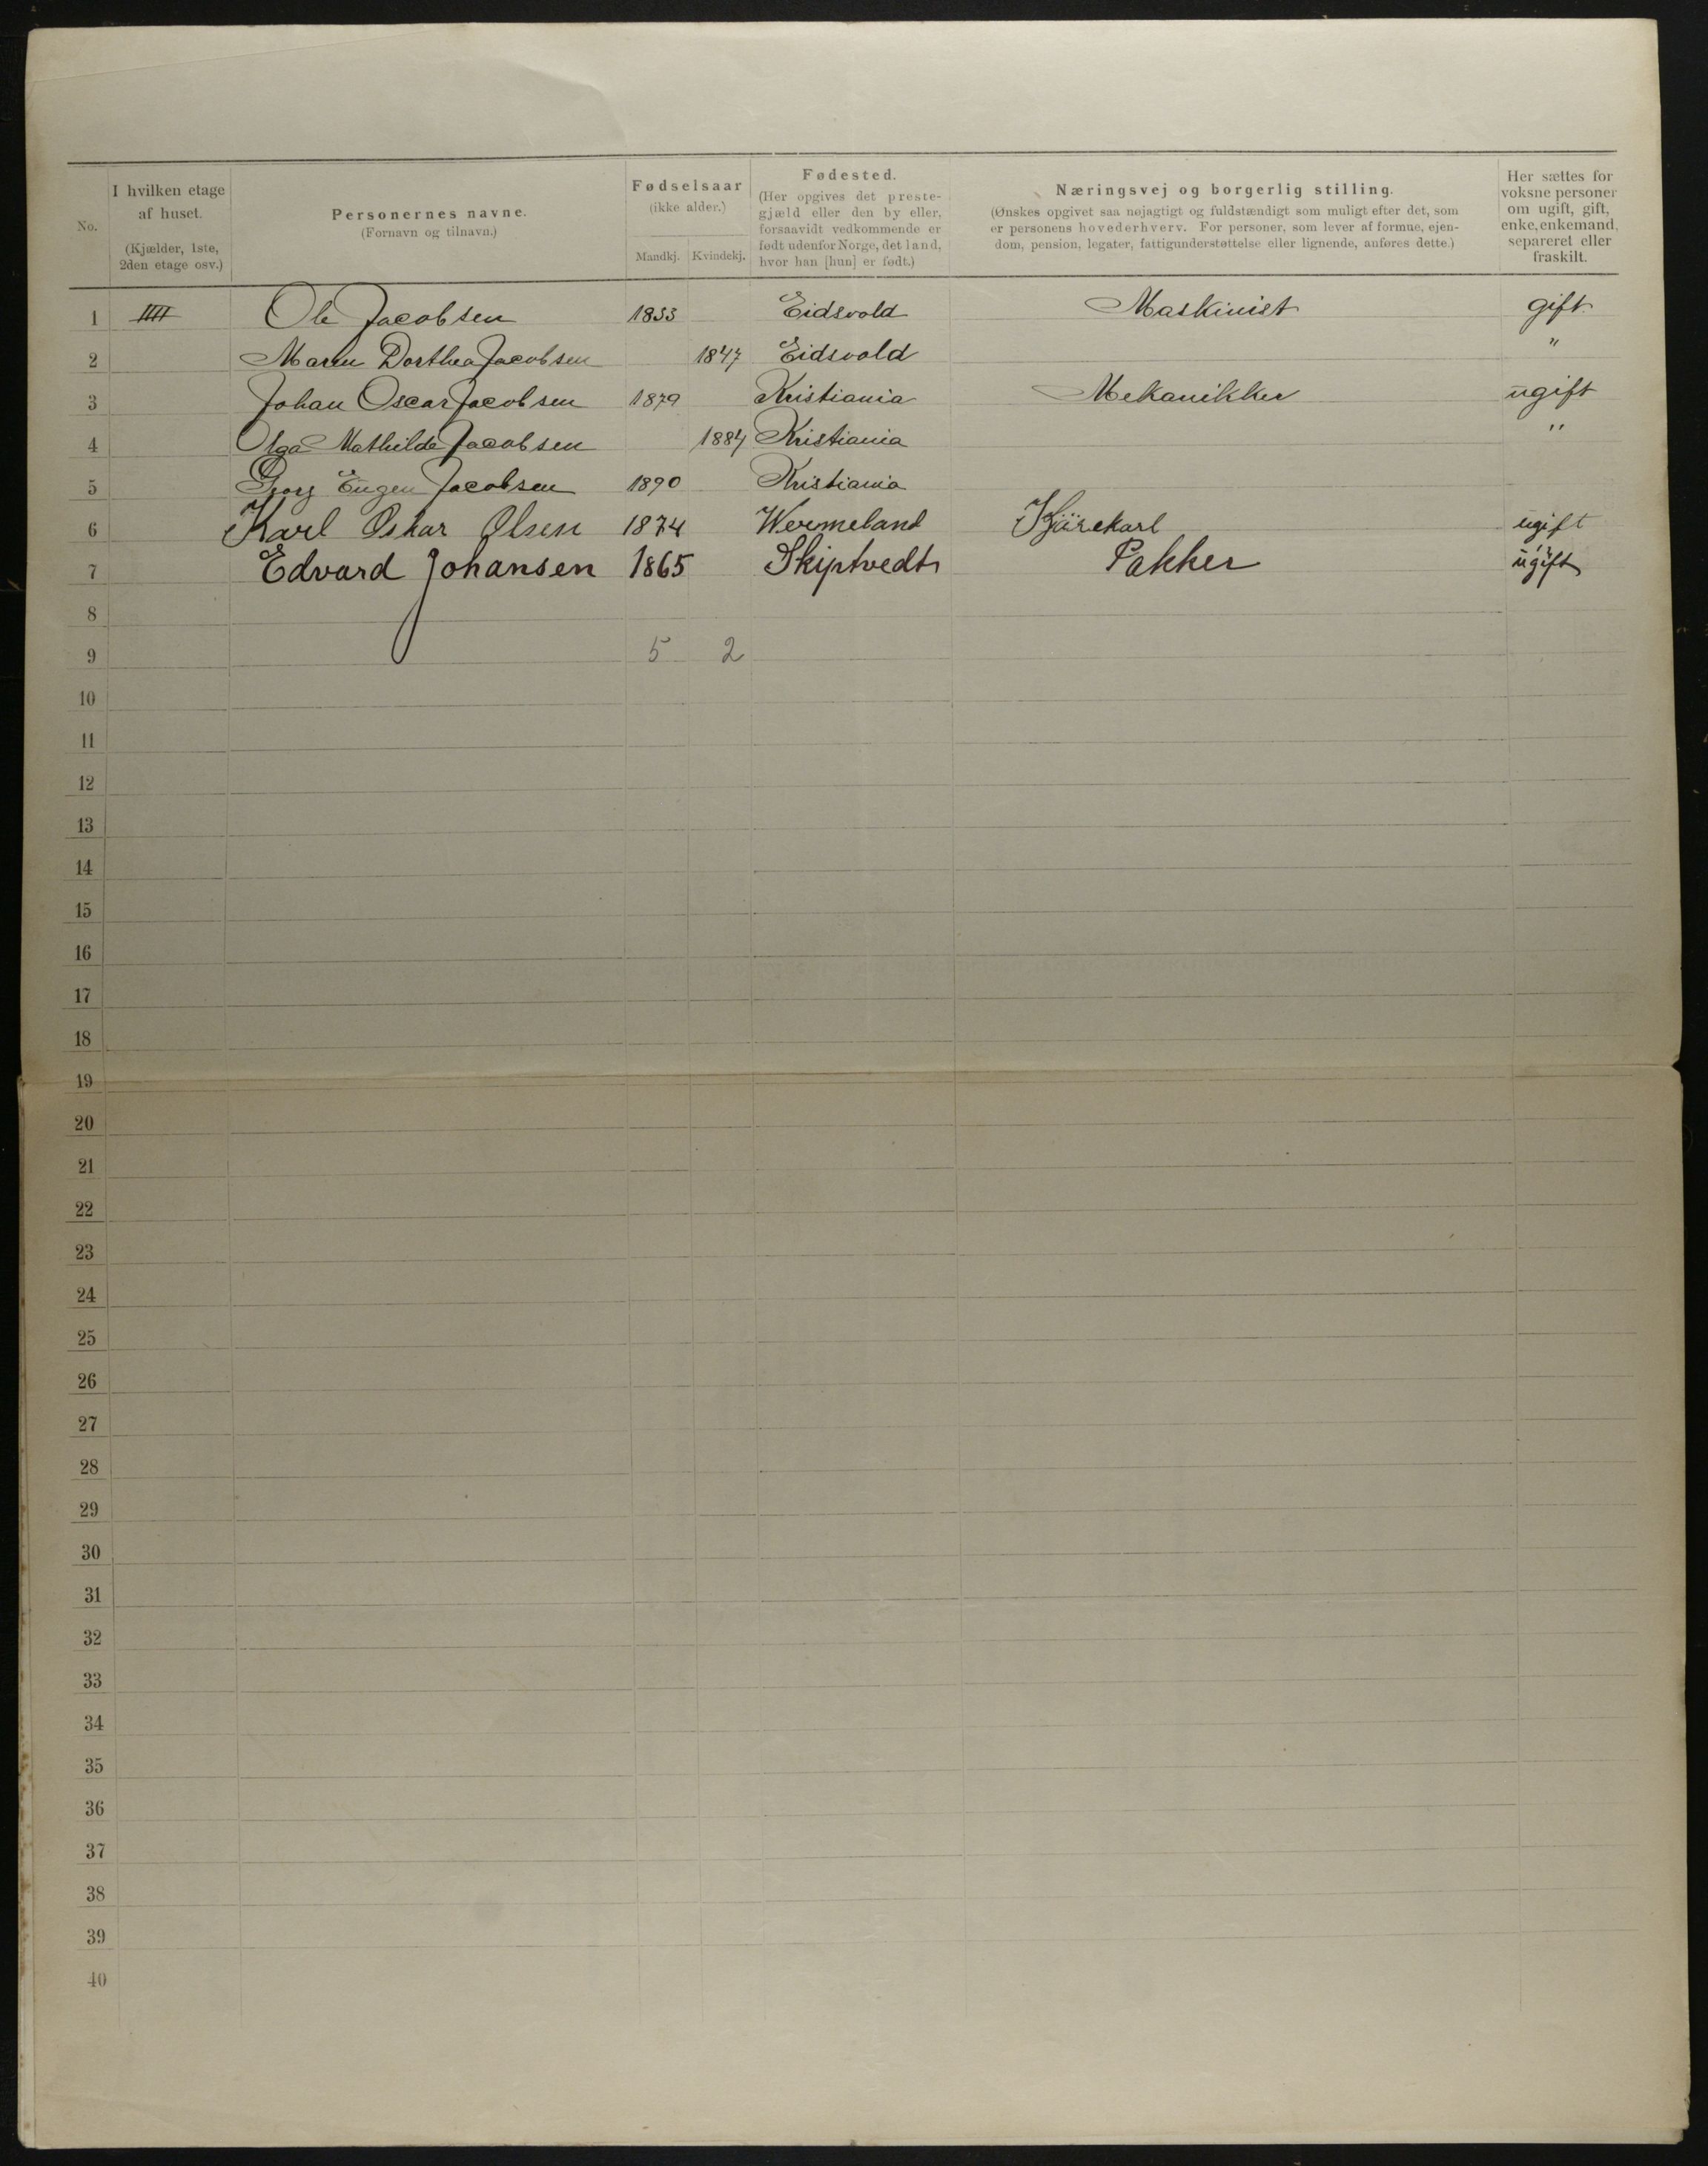 No.
I hvilken etage af huset. (Kjælder, 1ste, 2den etage osv.)
Personernes navne. (Fornavn og tilnavn.)
Fødselsaar (ikke alder.)
Mandkj. Kvindekj.
Fødested. (Her opgives det prestegjæld eller den by eller, forsaavidt vedkommende er født udenfor Norge, det land, hvor han [hun] er født.)
Næringsvej og borgerlig stilling.
(Ønskes opgivet saa nøjagtigt og fuldstændigt som muligt efter det, som
er personens hovederhverv. For personer, som lever af formue, ejen-
dom, pension, legater, fattigunderstøttelse eller lignende, anføres dette.)
Her sættes for voksne personer om ugift, gift, enke, enkemand, separeret eller fraskilt.
1 Ole Jacobsen 1833 Eidsvold Maskinist gift
2 Maren Dorthea Jacobsen 1847 Eidsvold "
3 Johan Oscar Jacobsen 1879 Kristiania Mekanikker ugift
4 Olga Mathilde Jacobsen 1884 Kristiania "
5 Georg Eugen Jacobsen 1890 Kristiania
6 Karl Oskar Olsen 1874 Wermeland Kjörekarl ugift
7 Edvard Johansen 1865 Skiptvedt Pakker ugift
8
9 5 2
10
11
12
13
14
15
16
17
18
19
20
21
22
23
24
25
26
27
28
29
30
31
32
33
34
35
36
37
38
39
40